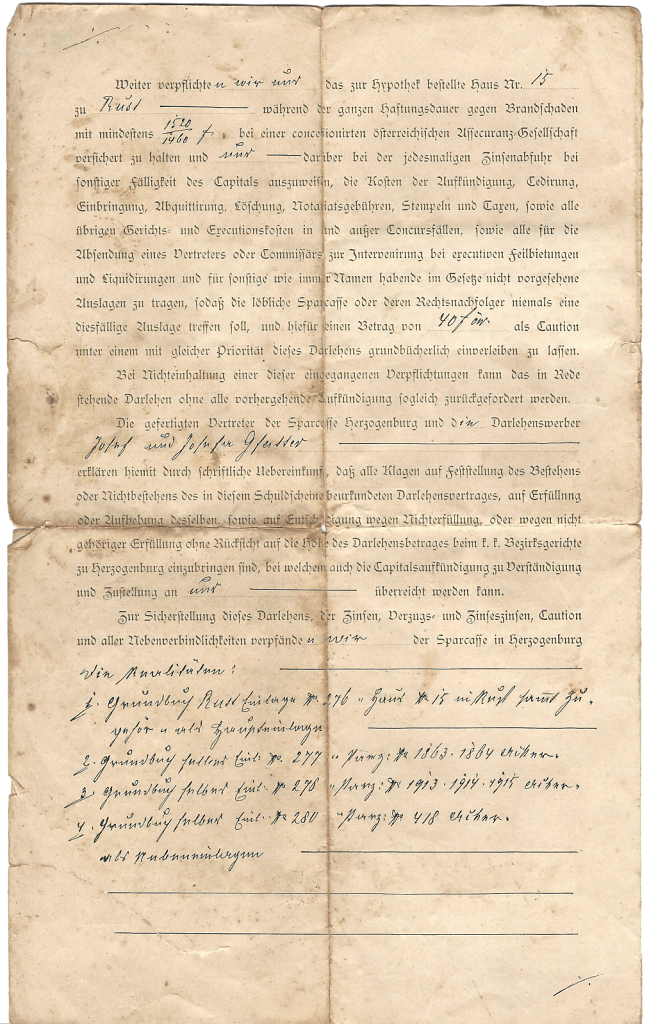 Weiter verpflichten wir uns das zur Hypothek bestellte Haus Nr. 15
zu Rust während der ganzen Haftungsdauer gegen Brandschaden
mit mindestens 1520/1460 f, bei einer concessionirten österreichischen Assecuranz-Gesellschaft
versichert zu halten und uns darüber bei der jedesmaligen Zinsenabfuhr bei
sonstiger Fälligkeit des Capitals auszuweisen, die Kosten der Aufkündigung, Cedirung,
Einbringung, Abquittirung, Löschung, Notariatsgebühren, Stempeln und Taxen, sowie alle
übrigen Gerichts- und Executionskosten in und außer Concursfällen, sowie alle für die
Absendung eines Vertreters oder Commissärs zur Intervenirung bei executiven Feilbietungen
und Liquidirungen und für sonstige wie immer Namen habende im Gesetze nicht vorgesehene
Auslagen zu tragen, sodaß die löbliche Sparcasse oder deren Rechtsnachfolger niemals eine
diesfällige Auslage treffen soll, und hiefür einen Betrag von 40 f öw. als Caution
unter einem mit gleicher Priorität dieses Darlehens grundbücherlich einverleiben zu lassen.
Bei Nichteinhaltung einer dieser eingegangenen Verpflichtungen kann das in Rede
stehende Darlehen ohne alle vorhergehende Aufkündigung sogleich zurückgefordert werden.
Die gefertigten Vertreter der Sparcasse Herzogenburg und die Darlehenswerber
Josef und Josefa
erklären hiemit durch schriftliche Uebereinkunft, daß alle Klagen auf Feststellung des Bestehens
oder Nichtbestehens des in diesem Schuldscheine beurkundeten Darlehensvertrages, auf Erfüllung
oder Aufhebung desselben, sowie auf Entschädigung wegen Nichterfüllung, oder wegen nicht
gehöriger Erfüllung ohne Rücksicht auf die Höhe des Darlehensbetrages beim k. k. Bezirksgerichte
zu Herzogenburg einzubringen sind, bei welchem auch die Capitalsaufkündigung zu Verständigung
und Zustellung an uns überreicht werden kann.
Zur Sicherstellung dieses Darlehens, der Zinsen, Verzugs- und Zinseszinsen, Caution
und aller Nebenverbindlichkeiten verpfänden wir der Sparcasse in Herzogenburg
die Realitäten:
1. Grundbuch Rust Einlage No. 276 „ Haus No 15 in Rust sammt Zu-
gehör „ als Haupteinlage
2. Grundbuch selbes Einl. No. 277 „ Parz: No 1863. 1864 Acker.
3. Grundbuch selbes Einl. No 278 „ Parz: No 1913. 1914. 1915 Acker.
4. Grundbuch selbes Einl. No 280 „ Parz: No 418 Acker.
als Nebeneinlagen